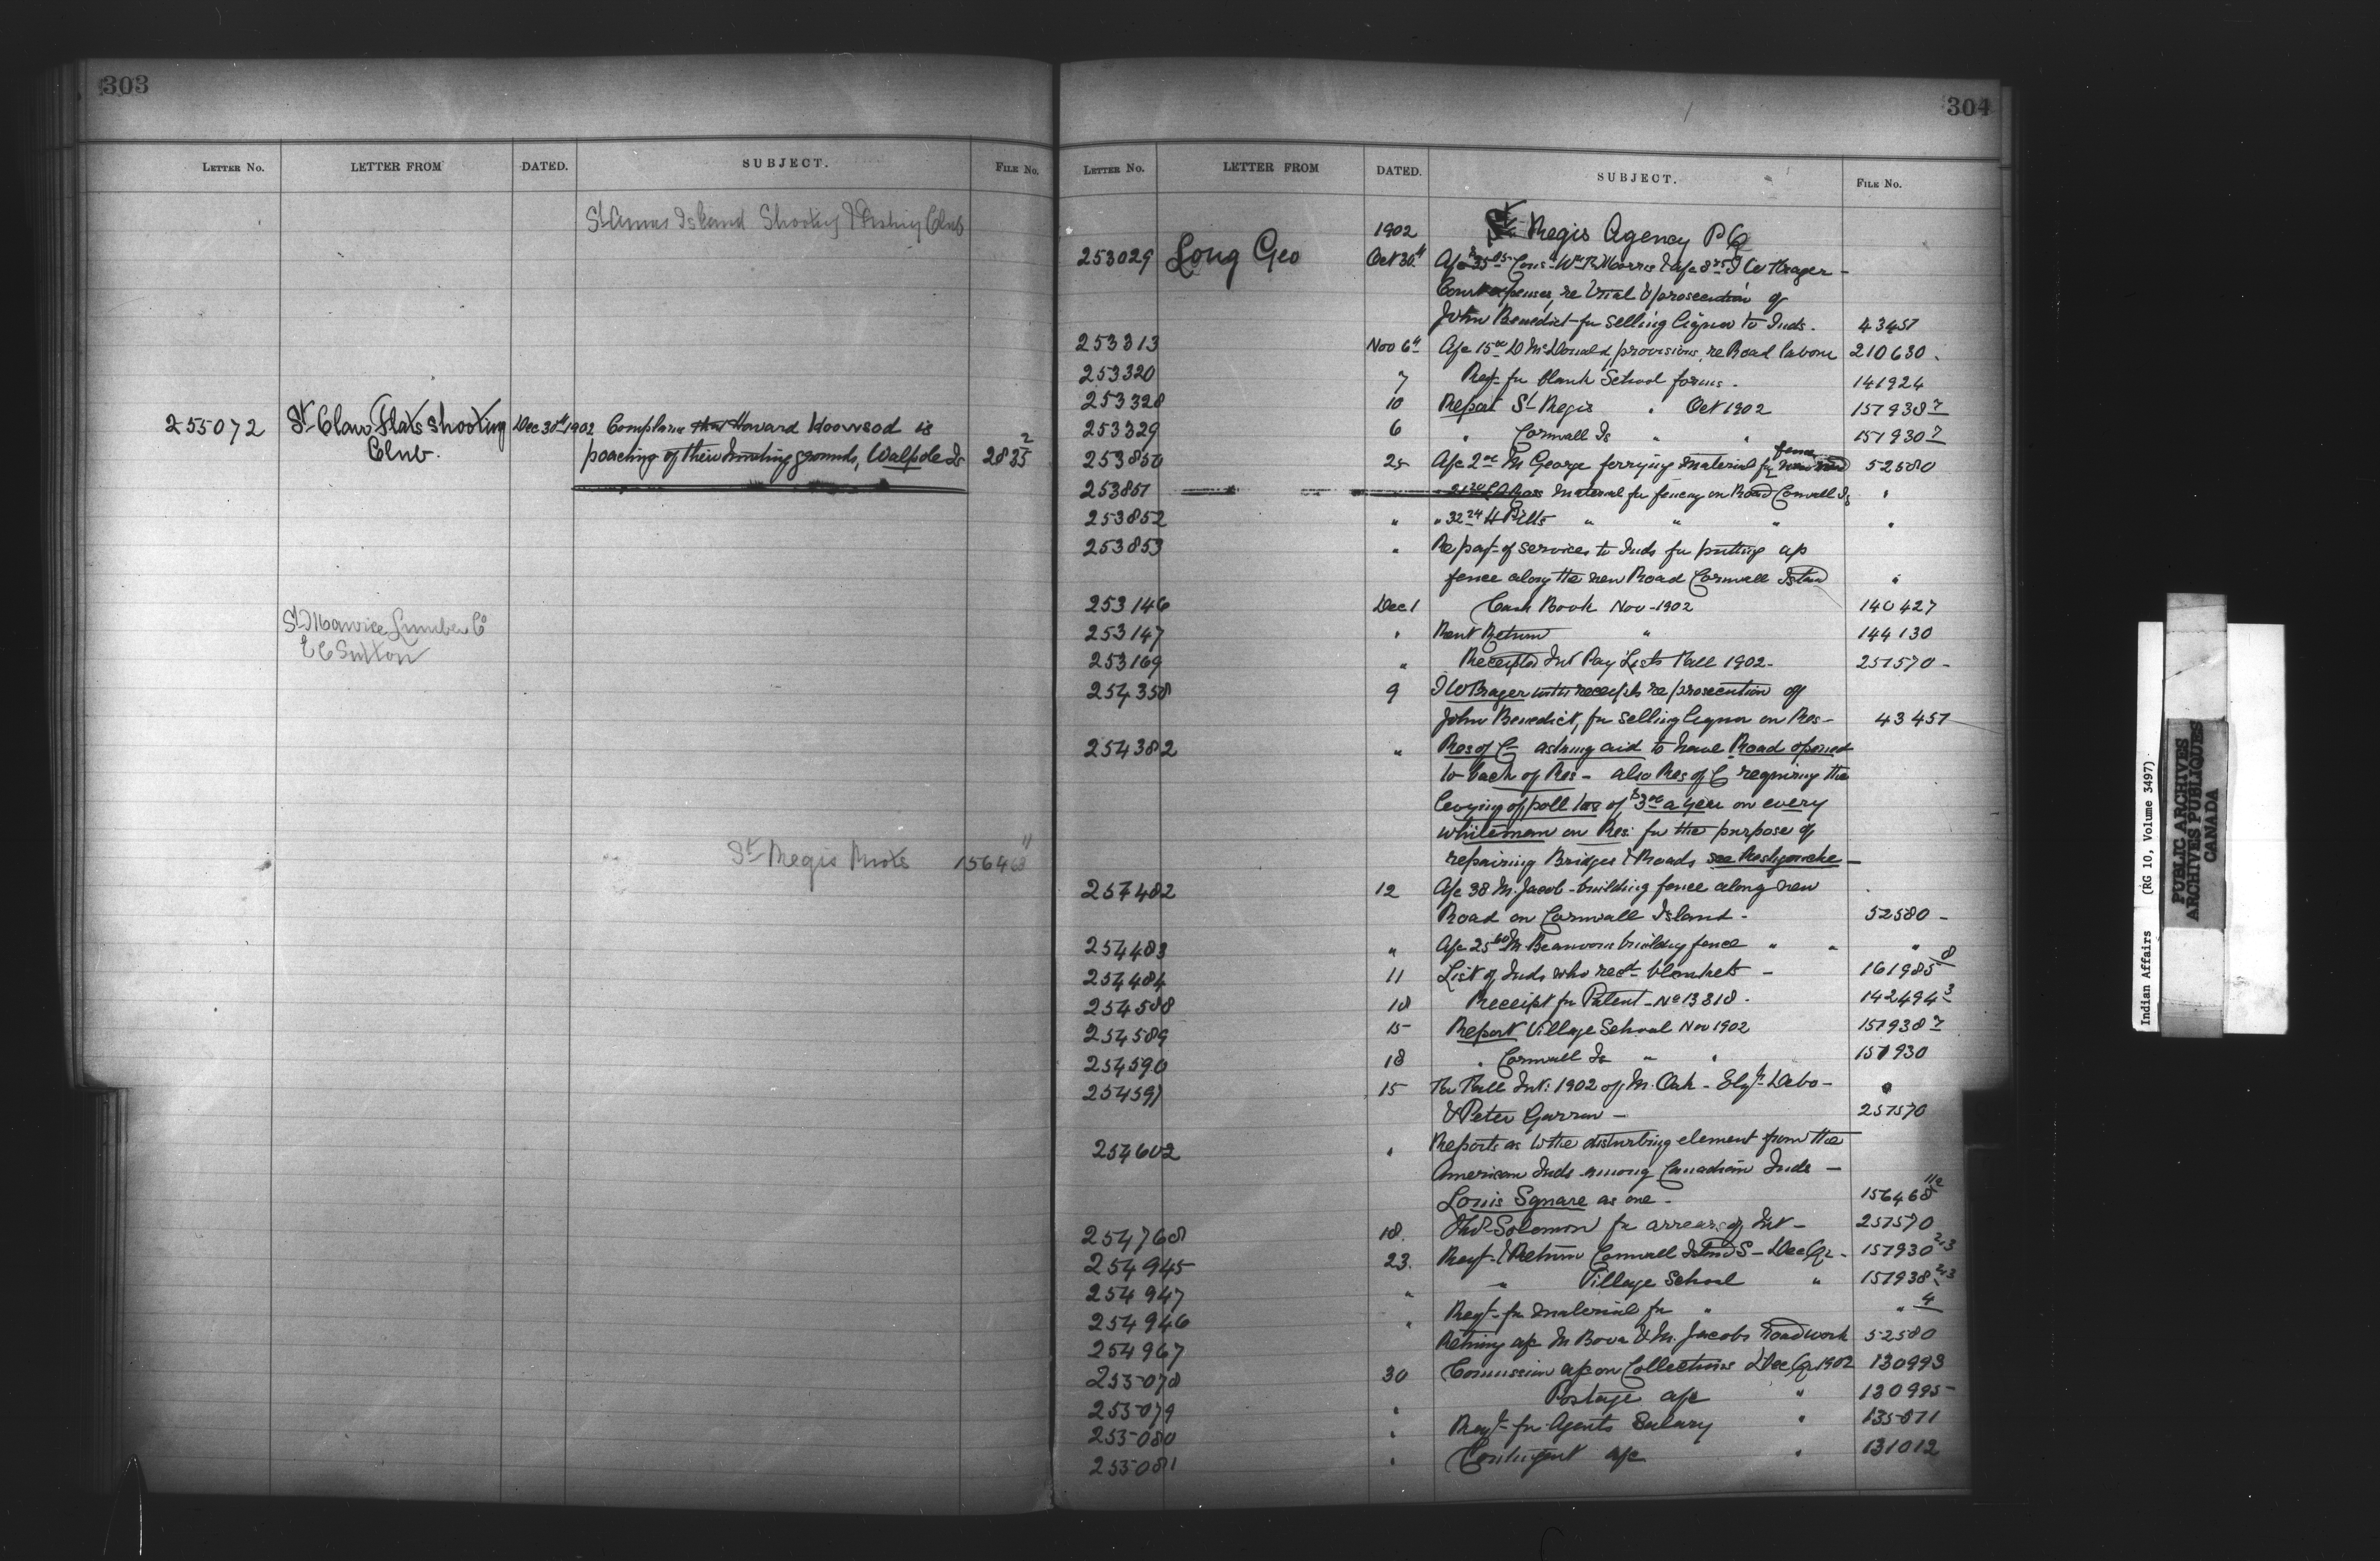 303
LETTER No. LETTER FROM DATED. SUBJECT. FILE No.
St Annes Island Shooting & Fishing Club
255072 St Clair Flats Shooting Dec 30th 1902 Complain that Howard is
Club. poaching of their hunting grounds, Walpole Is 2835 2
St Maurice Lumber Co
E C Sutton
St Regis 156463 11
304
LETTER No. LETTER FROM DATED. SUBJECT. FILE No.
1902 St Regis Agency P Q
253029 Long Geo Oct 30th A/c $35.05 Cons. Wm R Morris & A/c
Court expenses, re Trial & prosecution of
John Benedict for selling liquor to Inds. 43457
253313 Nov 6th A/c 15.00 D McDonald, provisions, re Road labour 210630
253320 7 Reqt for blank School forms. 141924
253328 10 Report St Regis " Oct 1902 157938 7
253329 6 " Cornwall Is " " 157930 7
253850 25 A/c 2.00 M George ferrying material for fence new road 52580
253851 Ross Material for fencing on Road Cornwall Is "
253852 " " 32.24 H " " " "
253853 " Re payt of services to Inds for putting up
fence along the new Road Cornwall Island "
253146 Dec 1 Cash Book Nov-1902 140427
253147 " Rent Return " 144130
253169 " Receipted Int Pay Lists Fall 1902 - 257570 -
254358 9 with receipts re prosecution of
John Benedict, for selling liquor on Res - 43457
254382 " Res of C- asking aid to have Road opened
to back of Res - also Res of C requiring the
levying of poll tax of $3.00 a year on every
whiteman on Res: for the purpose of
repairing Bridges & Roads see Restigouche -
257482 12 A/c 38 M. Jacob - building fence along new
Road on Cornwall Island - 52580 -
254483 " A/c 25.60 M building fence " " "
254484 11 List of Inds who recd blankets - 161985 8
254588 18 Receipt for Patent - No 13818 . 142494 3
254589 15 Report Village School Nov 1902 157938 7
254590 18 " Cornwall Is " " 157930
254591 15 Re Fall Int: 1902 of M. Oak - Elizth Debo - "
& Peter - 257570
254602 " Reports as to the disturbing element from the
American Inds among Canadian Inds -
Louis Square as one - 156468 11
254768 18. Solomon for arrears of Int - 257570
254945 23. Reqt & Return Cornwall Island S - Dec Qr - 157930 2,3
254947 " " Village School " 157938 2,3
254946 " Reqt for material for " " 4
254967 Retung a/c M Bova & M. Jacobs Roadwork 52580
255078 30 Commission a/c on Collections Dec Qr 1902 130993
255079 " Postage a/c " 130995 -
255080 " Reqt for Agents Salary " 135071
255081 " Contingent a/c " 131012
Indian Affairs (RG 10, Volume 3497)
PUBLIC ARCHIVES
ARCHIVES PUBLIQUES
CANADA